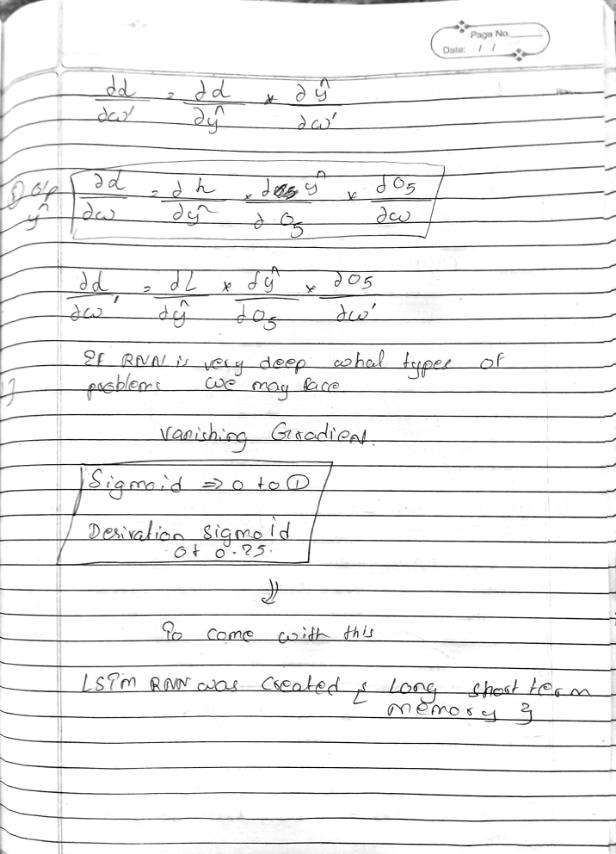 Page No.
Date: / /
∂L/∂ω' = ∂L/∂ŷ * ∂ŷ/∂ω'
O/p ŷ
∂L/∂ω = ∂L/∂ŷ * ∂ŷ/∂O5 * ∂O5/∂ω
∂L/∂ω' = ∂L/∂ŷ * ∂ŷ/∂O5 * ∂O5/∂ω'
If RNN is very deep what types of
problems we may face
Vanishing Gradient.
Sigmoid => 0 to 1
Derivation sigmoid
0t 0.25.
⇓
To come with this
LSTM RNN was created { Long short term
memory }